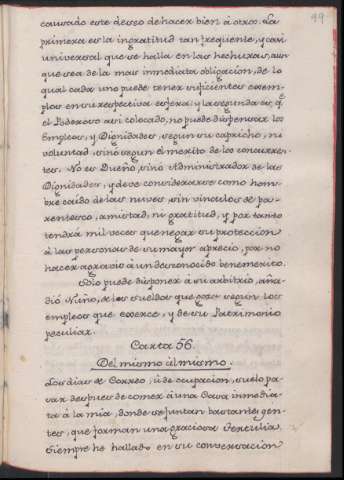 99
causado este deseo de hacer bien à otro. La
primera es la ingratitud tan freqüente, y casi
universal que se halla en las hechuras, aun
que sea de la mas inmediata obligacion, de lo
qual cada uno puede tener suficientes exem-
plos en su respectiva esfera; y la segunda es, q.e
el Poderoso asi colocado, no puede dispensar los
Empleos, y Dignidades segun su capricho, ni
voluntad, sino segun el merito de los concurren-
tes. No es Dueño, sino Administrador de las
Dignidades, y deve considerarse como hom-
bre caido de las nuves, sin vinculos de pa-
rentesco, amistad, ni gratitud, y por tanto
tendrá mil veces que negar su proteccion
à las personas de su mayor aprecio, por no
hacer agravio à un desconocido benemerito.
Solo puede disponer à su arbitrio, aña-
dió Nuño, de los sueldos que goze segun los
empleos que exerce, y de su Patrimonio
peculiar.
Carta 56.
Del mismo àl mismo.
Los dias de Correo, ù de ocupacion, suelo pa-
sar despues de comer à una Casa inmedia-
ta à la mia, donde se juntan bastantes gen-
tes, que forman una graciosa tertulia.
Siempre he hallado en su conversacion